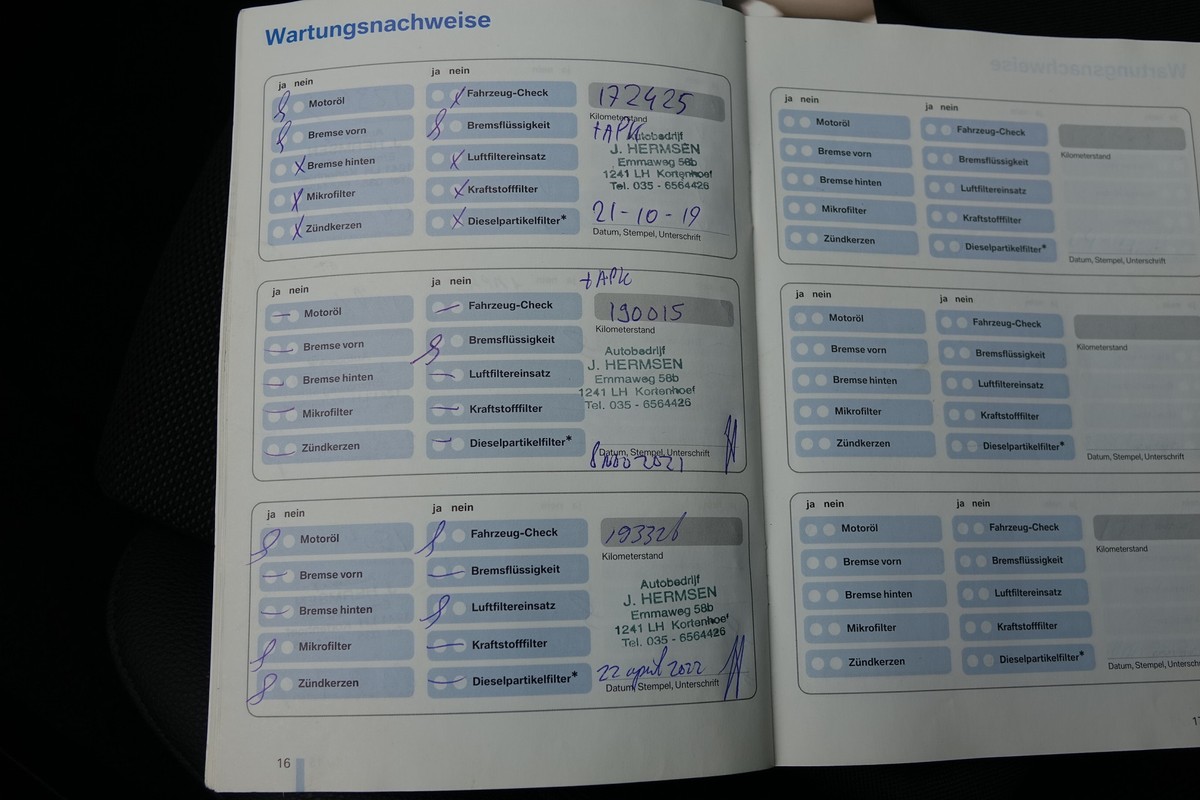 Wartungsnachweise
ja nein
ja nein
Motoröl
Fahrzeug-Check
172425
Kilometerstand
Bremse vorn
Bremsflüssigkeit
+APK
Autobedrijf
J. HERMSEN
Emmaweg 58b
1241 LH Kortenhoef
Tel. 035 - 6564426
Bremse hinten
Luftfiltereinsatz
Mikrofilter
Kraftstofffilter
Zündkerzen
Dieselpartikelfilter*
21-10-19
Datum, Stempel, Unterschrift
ja nein
ja nein
+APK
Motoröl
Fahrzeug-Check
190015
Kilometerstand
Bremse vorn
Bremsflüssigkeit
Autobedrijf
J. HERMSEN
Emmaweg 58b
1241 LH Kortenhoef
Tel. 035 - 6564426
Bremse hinten
Luftfiltereinsatz
Mikrofilter
Kraftstofffilter
Zündkerzen
Dieselpartikelfilter*
Datum, Stempel, Unterschrift
8 nov 2021
ja nein
ja nein
Motoröl
Fahrzeug-Check
193326
Kilometerstand
Bremse vorn
Bremsflüssigkeit
Autobedrijf
J. HERMSEN
Emmaweg 58b
1241 LH Kortenhoef
Tel. 035 - 6564426
Bremse hinten
Luftfiltereinsatz
Mikrofilter
Kraftstofffilter
Zündkerzen
Dieselpartikelfilter*
22 april 2022
Datum, Stempel, Unterschrift
16
ja nein
ja nein
Motoröl
Fahrzeug-Check
Kilometerstand
Bremse vorn
Bremsflüssigkeit
Bremse hinten
Luftfiltereinsatz
Mikrofilter
Kraftstofffilter
Zündkerzen
Dieselpartikelfilter*
Datum, Stempel, Unterschrift
ja nein
ja nein
Motoröl
Fahrzeug-Check
Kilometerstand
Bremse vorn
Bremsflüssigkeit
Bremse hinten
Luftfiltereinsatz
Mikrofilter
Kraftstofffilter
Zündkerzen
Dieselpartikelfilter*
Datum, Stempel, Unterschrift
ja nein
ja nein
Motoröl
Fahrzeug-Check
Kilometerstand
Bremse vorn
Bremsflüssigkeit
Bremse hinten
Luftfiltereinsatz
Mikrofilter
Kraftstofffilter
Zündkerzen
Dieselpartikelfilter*
Datum, Stempel,